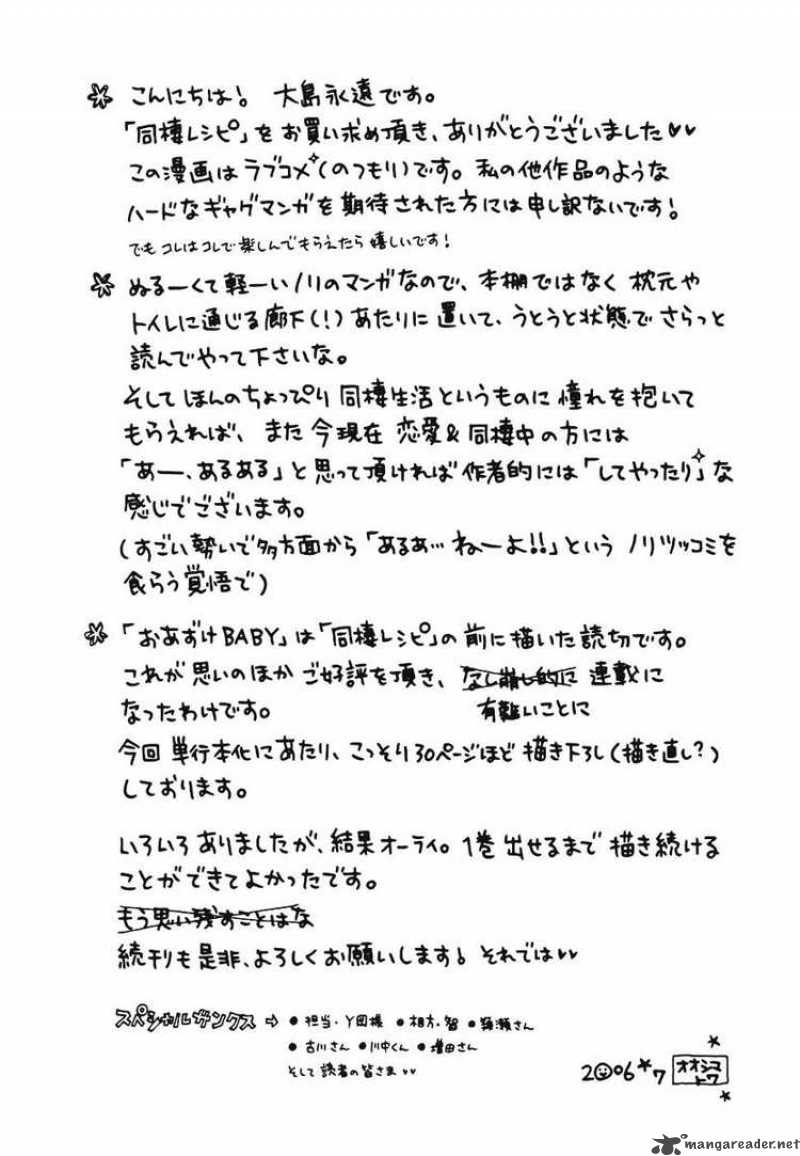 こんにちは! 大島永遠です。
「同棲レシピ」をお買い求め頂き、ありがとうございました♥♥
この漫画はラブコメ(のつもり)です。私の他作品のような
ハードなギャグマンガを期待された方には申し訳ないです!
でもコレはコレで楽しんでもらえたら嬉しいです!
ぬるーくて軽ーいノリのマンガなので、本棚ではなく枕元や
トイレに通じる廊下(!)あたりに置いて、うとうと状態でさらっと
読んでやって下さいな。
そしてほんのちょっぴり同棲生活というものに憧れを抱いて
もらえれば、また今現在恋愛&同棲中の方には
「あー、あるある」と思って頂ければ作者的には「してやったり」な
感じでございます。
(すごい勢いで多方面から「あるあ…ねーよ!!」というノリツッコミを
食らう覚悟で)
「おあずけBABY」は「同棲レシピ」の前に描いた読切です。
これが思いのほかご好評を頂き、なし崩し的に連載に
有難いことに
なったわけです。
今回単行本化にあたり、こっそり30ページほど描き下ろし(描き直し?)
しております。
いろいろありましたが、結果オーライ。1巻出せるまで描き続ける
ことができてよかったです。
もう思い残すことはな
続刊も是非、よろしくお願いします! それでは♥♥
スペシャルサンクス ⇨ ●担当・Y田様 ●相方・智 ●瀬さん
●古川さん ●川中くん ●増田さん
そして読者の皆さま♥♥
2006★7 オオシマトワ
mangareader.net